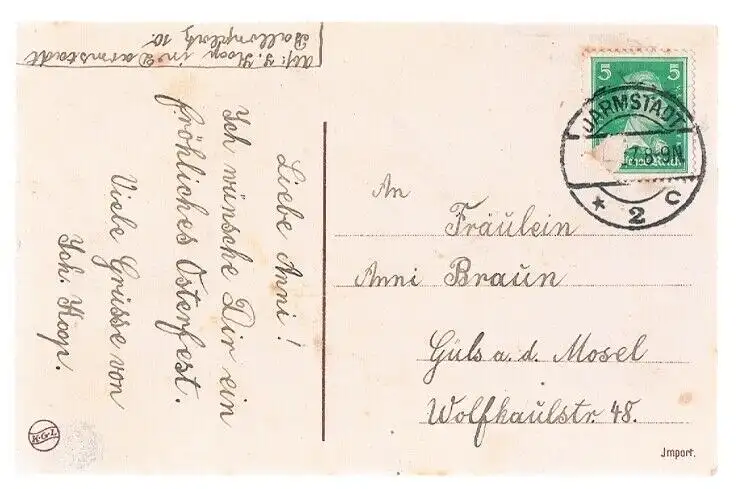 Abs: J. Koop in Darmstadt
Ballonplatz 10.
Liebe Anni!
Ich wünsche Dir ein
fröhliches Osterfest.
Viele Grüsse von
Joh. Koop.
5 5
Deutsches Reich
DARMSTADT
8-9N
* 2 C
An
Fräulein
Anni Braun
Güls a. d. Mosel
Wolfkaulstr. 48.
K.G.L.
Import.